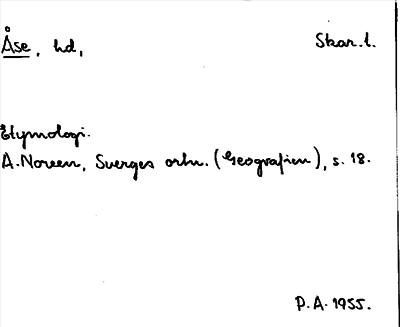 Åse, hd, Skar. l.
Etymologi.
A. Noreen, Sverges ortn. (Geografien), s. 18.
P.A. 1955.